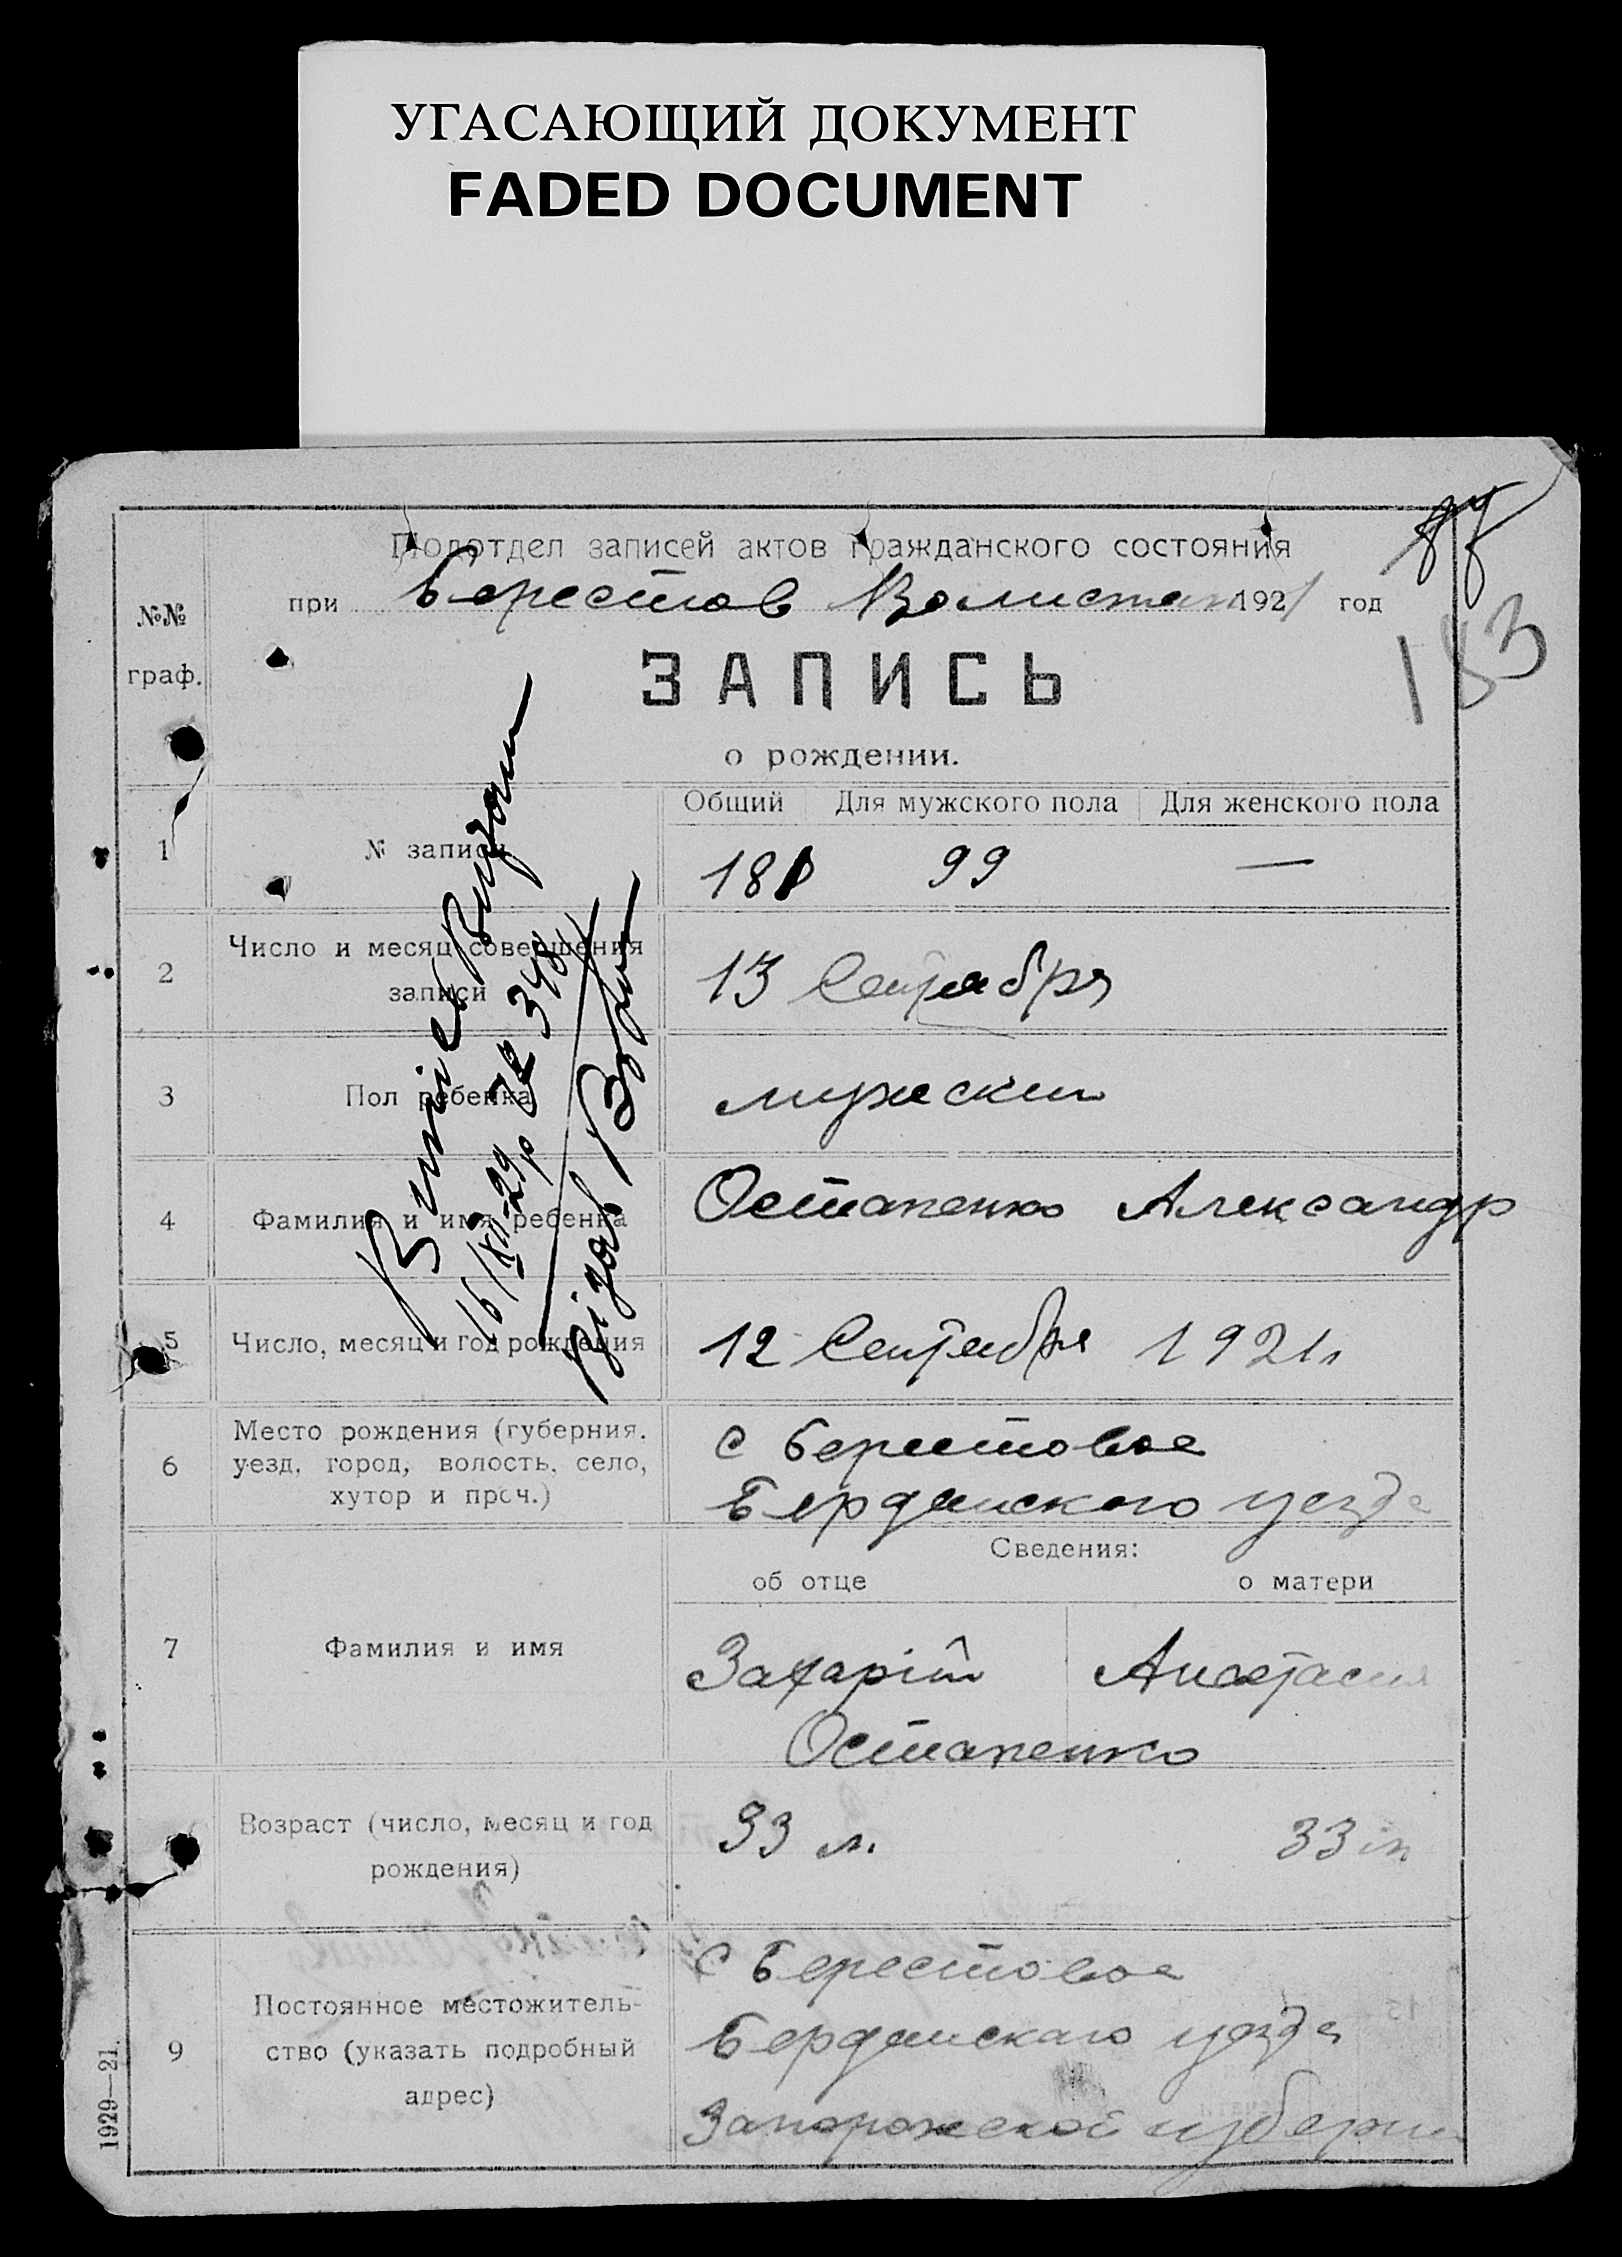 УГАСАЮЩИЙ ДОКУМЕНТ
FADED DOCUMENT
Подотдел записей актов гражданского состояния
при Берестов Волистком 1921 год
183
№№
граф.
ЗАПИСЬ
о рождении.
Общий Для мужского пола Для женского пола
1 № записи 181 99 —
2 Число и месяц совершения
записи
13 Сентября
3 Пол ребенка мужеский
4 Фамилия и имя ребенка Остапенко Александр
5 Число, месяц и год рождения 12 Сентября 1921 г
6 Место рождения (губерния,
уезд, город, волость, село,
хутор и проч.)
с Берестовое
Бердянского уезда
Сведения:
об отце о матери
7 Фамилия и имя Захарій Анастасия
Остапенко
Возраст (число, месяц и год
рождения)
33 л. 33 л
9 Постоянное местожитель-
ство (указать подробный
адрес)
с Берестовое
Бердянскаго уезда
Запорожской губерни
1929—21.
16/XII-29р № 348